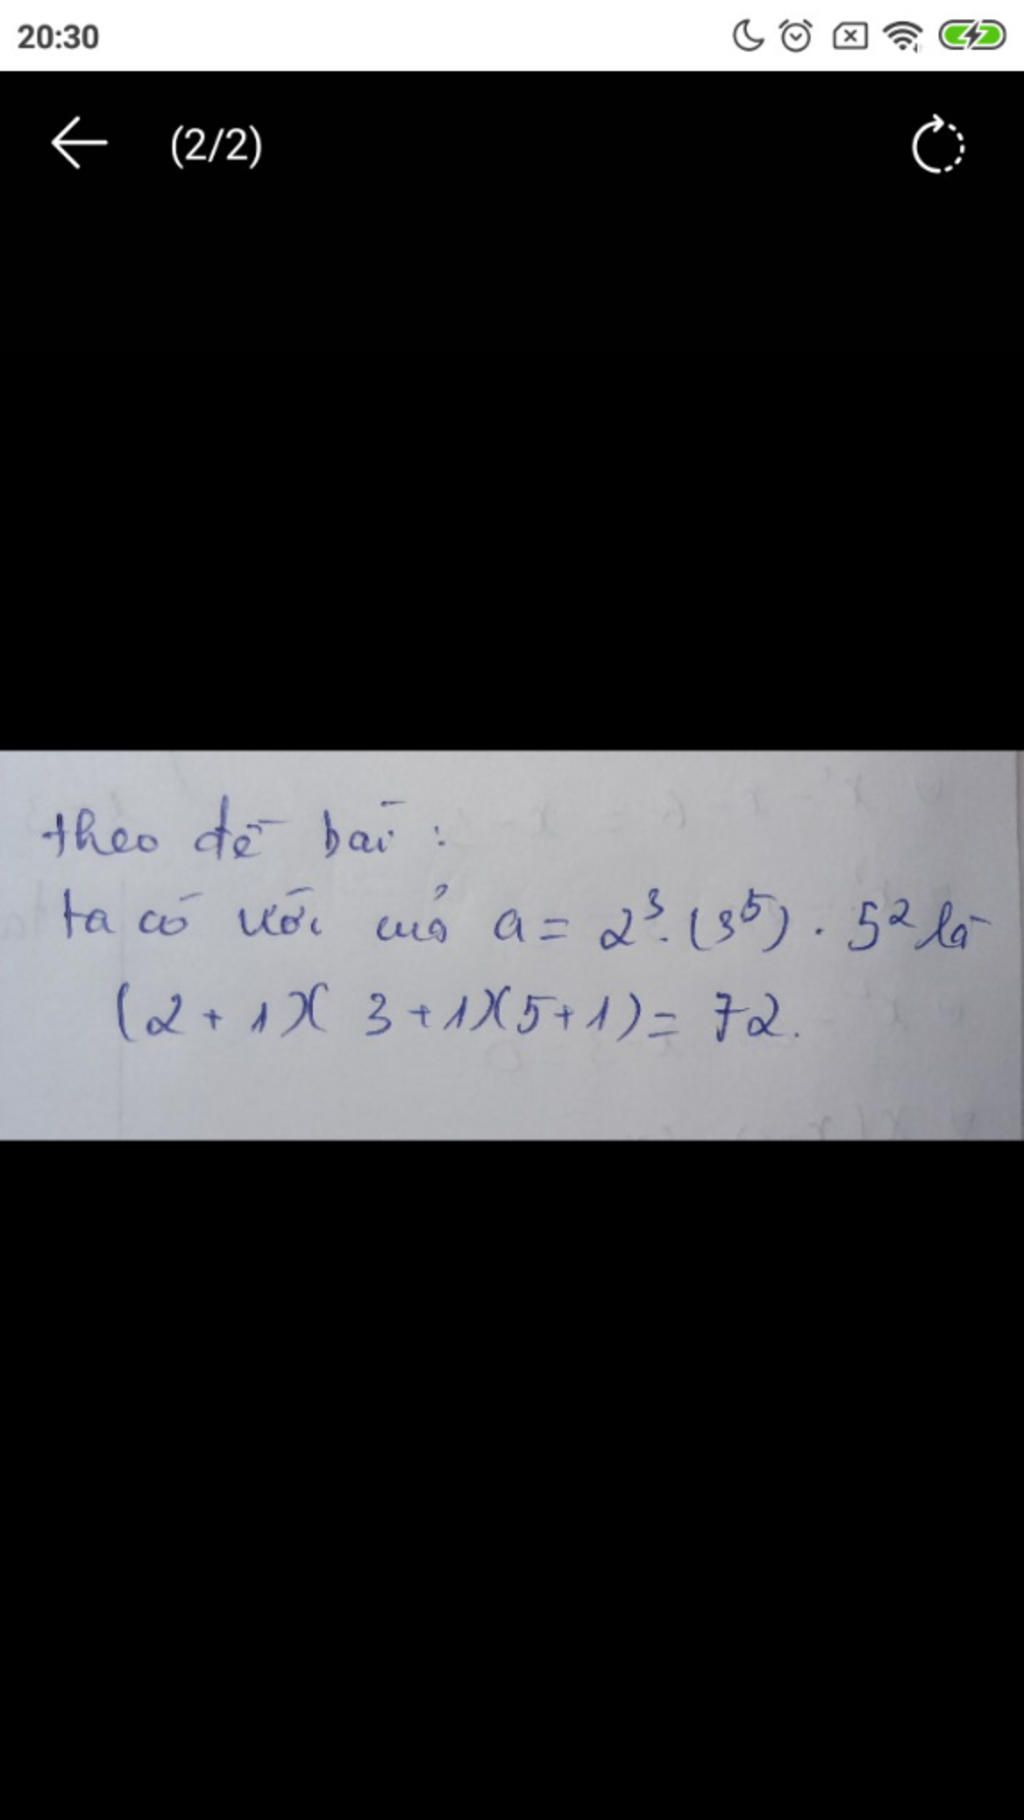 20:30
(2/2)
theo đề bài :
ta có với của a = 2³. (3⁵) . 5² là
(2 + 1)( 3 + 1)(5 + 1) = 72.